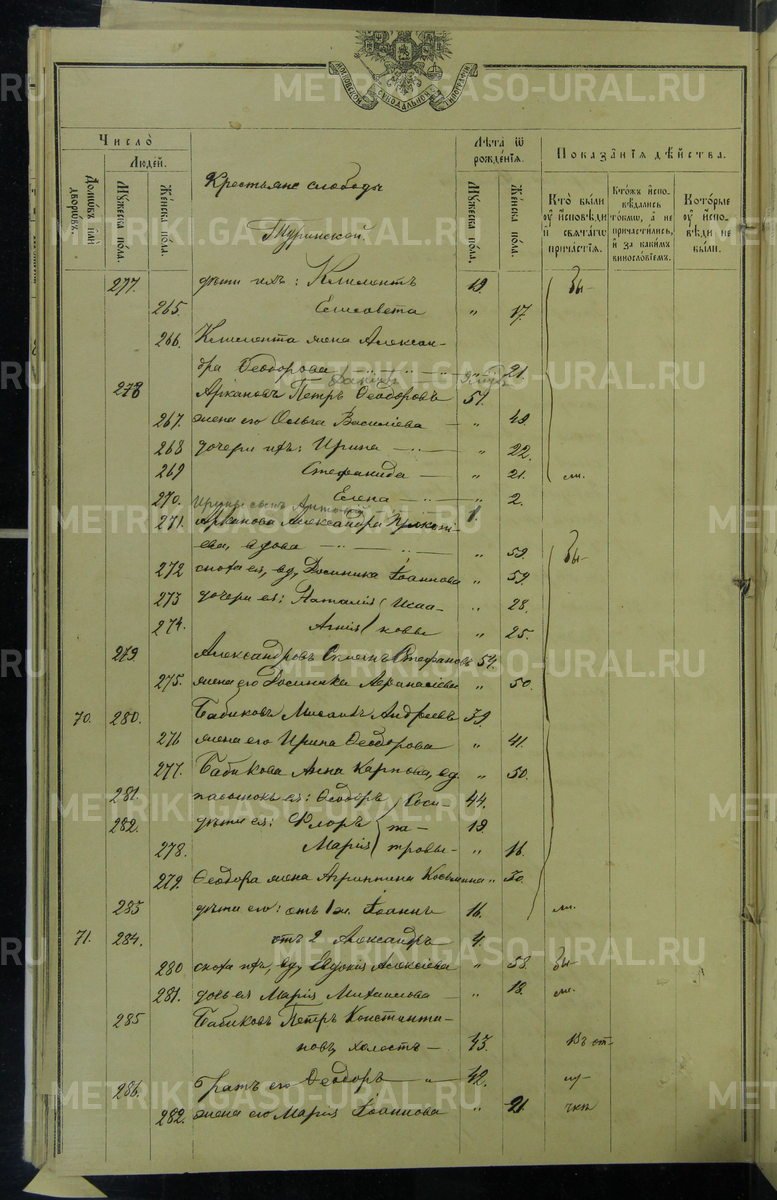 METRIKI.GASO-URAL.RU
МОСКОВСКОЙ СѴНОДАЛЬНОЙ ТИПОГРАФІИ
Число̀
Людей.
Домѡвъ или дворѡвъ.
Мꙋжеска пола.
Женска пола.
Крестьяне слободы
Туринской.
Лѣта ѿ рожденїѧ.
Мꙋжеска пола.
Женска пола.
Показанїѧ дѣйства.
Кто были оу исповѣди и свѧтагѡ причастїѧ.
Ктожъ исповѣдались токмѡ, а не причастились, и за какимъ винословїемъ.
Которые оу исповѣди не были.
277. дѣти ихъ: Климентъ 19. бы-
265. Елисавета " 17.
266. Климента жена Алексан-
дра Ѳеодорова 21.
278 Аркановъ Петръ Ѳеодоровъ 51.
267. жена его Ольга Василіева — " 49.
268 дочери ихъ: Ирина — " 22.
269 Стефанида — " 21. ли.
270. Елена — " 2.
Ирины сынъ 1.
271. Арканова Александра
ева, вдова — " 59. бы-
272 сноха ея, вд, Іоаннова " 59.
273 дочери ея: Наталія Исаа- " 28.
274. Агнія ковы " 25.
279. Александровъ Стефановъ 54.
275. жена его Афанасіева " 50.
70. 280. Бабиковъ Андреевъ 39.
276 жена его Ирина Ѳеодорова " 41.
277. Бабикова Анна Карпова, вд. " 50.
281. пасынокъ ея: Ѳеодоръ Коси- 44.
282. дѣти ея: Флоръ та- 19.
278. Марія тровы- " 16.
279. Ѳеодора жена Агриппина Косьмина " 30.
283 дѣти его: отъ 1 ж. Іоаннъ 16. ли.
71. 284. отъ 2 Александръ 4.
280 сноха ихъ, вд, Евдокія Алексіева " 58. бы-
281. дочь ея Марія Михаилова — " 18. ли.
285 Бабиковъ Петръ Константи-
новъ, холостъ — 45. Въ от-
286. Братъ его Ѳеодоръ " 42. лу-
282. жена его Марія Іоаннова " 21. чкѣ